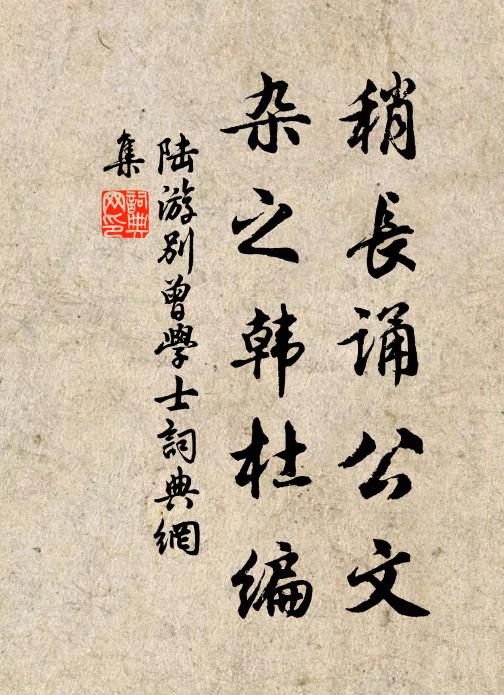 稍長诵公文
杂之韩杜编
陆游别曾學士詞典網
集
詞典
网印